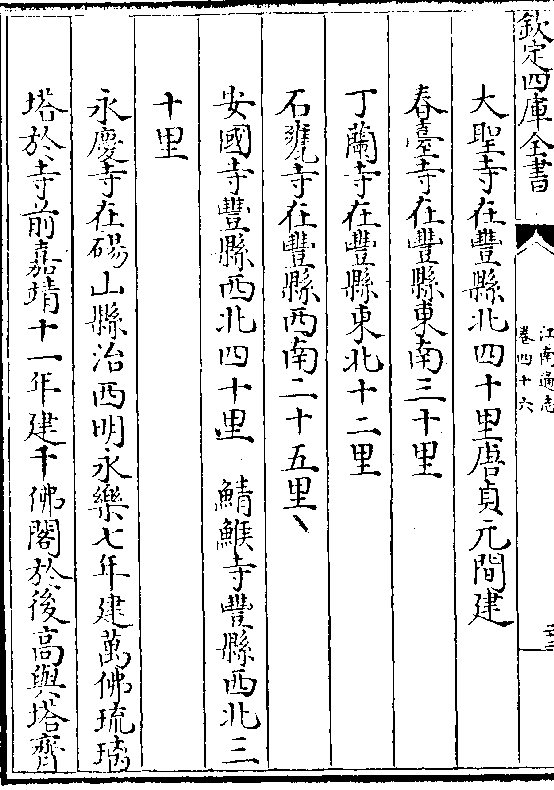 欽定四庫全書
江南通志
卷四十六
大聖寺在豐縣北四十里唐貞元間建
春臺寺在豐縣東南三十里
丁蘭寺在豐縣東北十二里
石甕寺在豐縣西南二十五里
安國寺豐縣西北四十里 鯖鯸寺豐縣西北三
十里
永慶寺在碭山縣治西明永樂七年建萬佛琉璃
塔於寺前嘉靖十一年建千佛閣於後高與塔齊